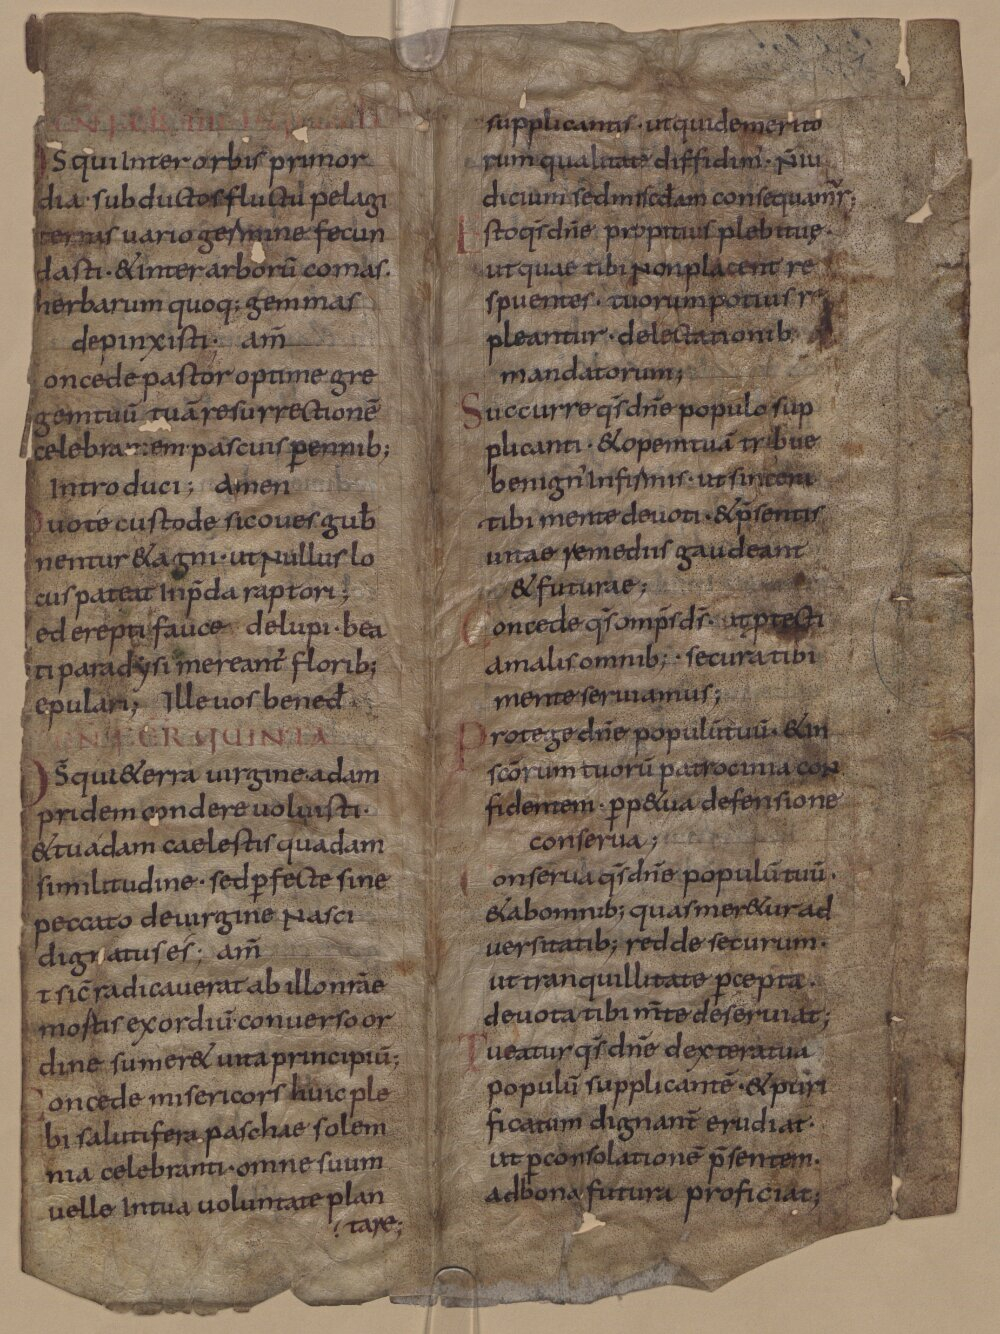 IN FER
DS qui inter orbis primor
dia · subductos fluctu pelagi
terras uario germine fecun
dasti · & inter arborū comas ·
herbarum quoq; gemmas
depinxisti · am̄
oncede pastor optime gre
gem tuū tuā resurrectionē
celebrantem pascuis p̄ennib;
Introduci; Amen
uo te custode sic oues gub̄
nentur & agni · ut nullus lo
cus pateat In p̄da raptori;
ed erepti fauce de lupi · bea
ti paradysi mereant̄ florib;
epulari; Ille uos bened̄
IN FER QUINTA
DS̄ qui & erra uirgine adam
pridem condere uoluisti ·
& tu adam caelestis quadam
similitudine · sed p̄fecte sine
peccato de uirgine nasci
dignatus es; am̄
t sic̄ radicauerat ab illo nr̄ae
mortis exordiū · conuerso or
dine sumer& uita principiū;
Concede misericors huic ple
bi salutifera paschae solem
nia celebranti · omne suum
uelle In tua uoluntate plan
tare;
supplicantis · ut qui de merito
rum qualitate diffidim̄ · n̄ iu
dicium sed miscd̄am consequamr̄;
Esto qs̄ dn̄e propitius plebi tuę ·
ut quae tibi non placent re
spuentes · tuorum potius re
pleantur · delectationib;
mandatorum;
Succurre qs̄ dn̄e populo sup
plicanti · & opem tuā tribue
benign̄ Infirmis · ut sincera
tibi mente deuoti · & p̄sentis
uitae remediis gaudeant
& futurae;
Concede qs̄ omp̄s ds̄ · ut p̄tecti
a malis omnib; · secura tibi
mente seruiamus;
Protege dn̄e populū tuū · & in
scōrum tuorū patrocinia con
fidentem · p̄p&ua defensione
conserua;
onserua qs̄ dn̄e populū tuū ·
& ab omnib; quas mer&ur ad
uersitatib; redde securum ·
ut tranquillitate p̄cepta ·
deuota tibi m̄te deseruiat;
Tueatur qs̄ dn̄e dextera tua
populū supplicantē · & puri
ficatum dignant̄ erudiat ·
ut p̄ consolationē p̄sentem ·
ad bona futura proficiat;